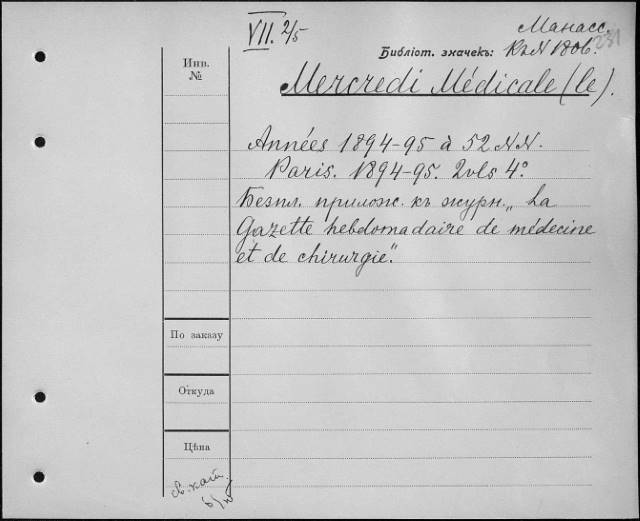 VII. 2/5
Манасс.
Библіот. значекъ: КъN 1806. 231
Инв.
№
Mercredi Médicale (le).
Années 1894-95 à 52 NN.
Paris. 1894-95. 2vls 4°.
Безпл. прилож. къ журн. „La
Gazette hebdomadaire de médecine
et de chirurgie".
По заказу
Откуда
Цѣна